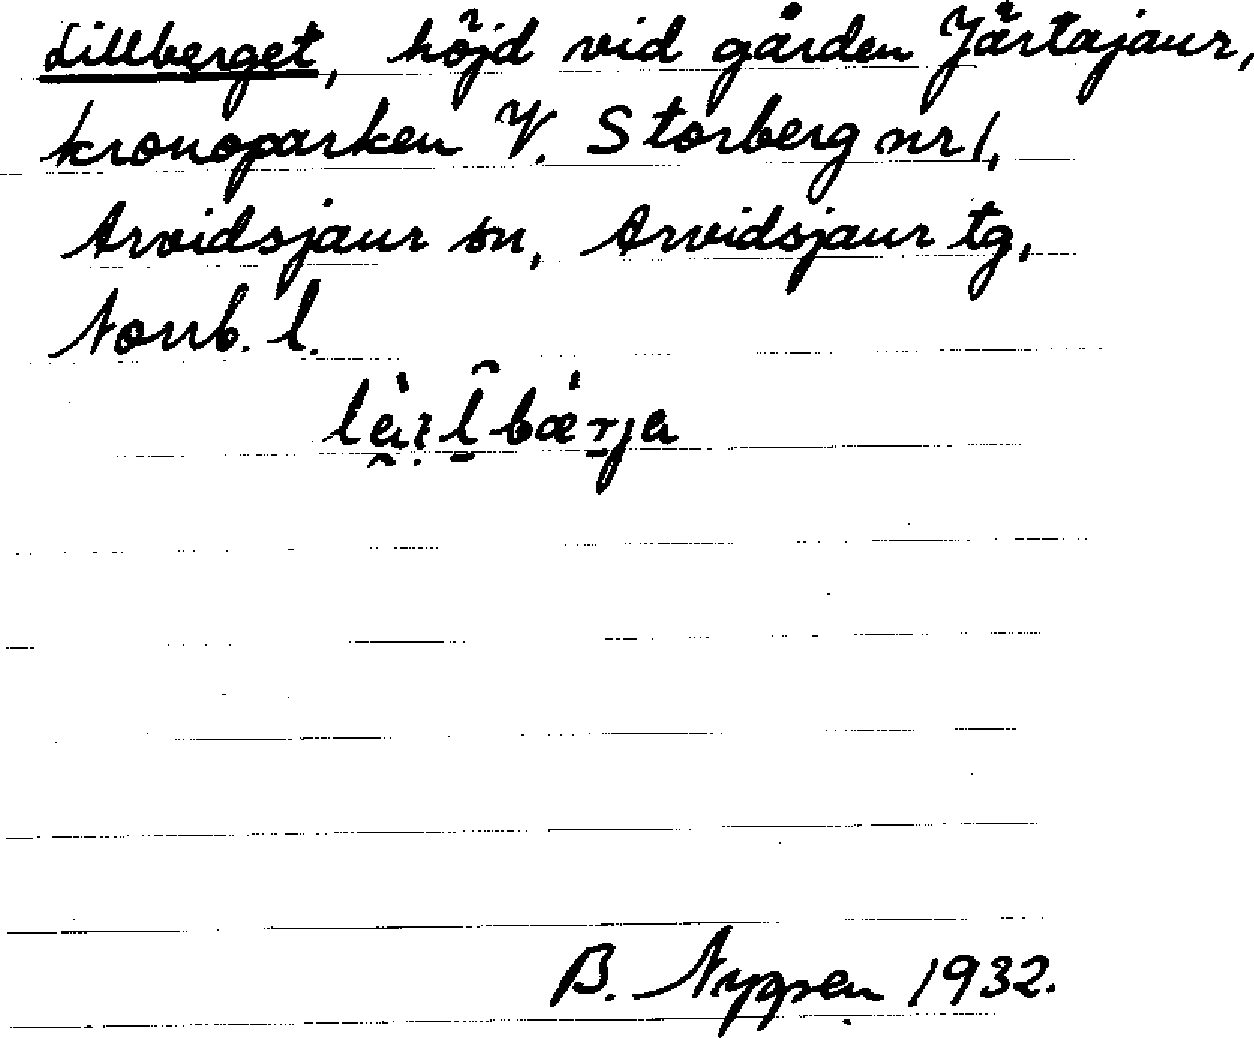 Lillberget, höjd vid gården Jårtajaur,
kronoparken V. Storberg nr 1,
Arvidsjaur sn, Arvidsjaur tg,
Norrb. l.
B. 1932.